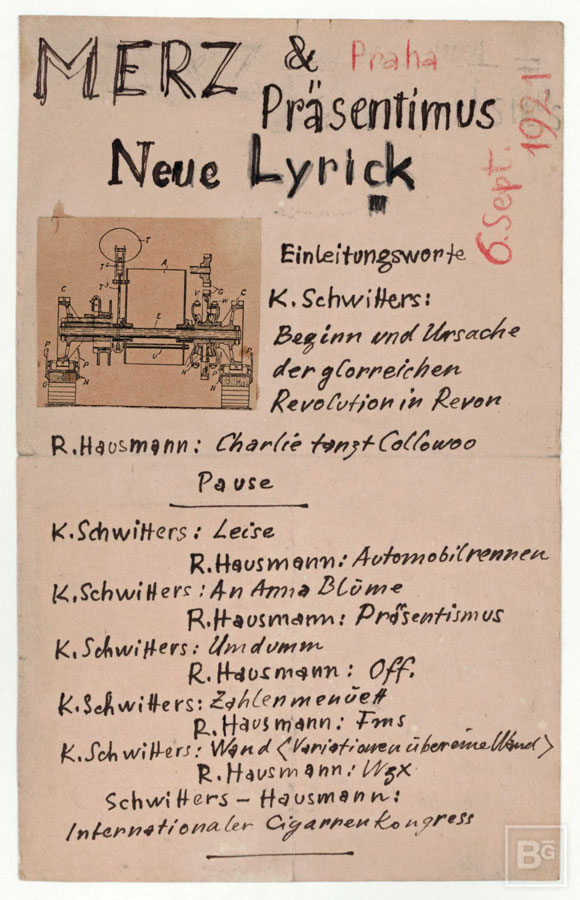 MERZ & Praha
Präsentimus
Neue Lyrick
6. Sept. 1921
Einleitungsworte
K. Schwitters:
Beginn und Ursache
der glorreichen
Revolution in Revon
R. Hausmann: Charlie tanzt Collowoo
Pause
K. Schwitters: Leise
R. Hausmann: Automobilrennen
K. Schwitters: An Anna Blüme
R. Hausmann: Präsentismus
K. Schwitters: Umdumm
R. Hausmann: Off.
K. Schwitters: Zahlenmenüett
R. Hausmann: Fms
K. Schwitters: Wand <Variationen über eine Wand>
R. Hausmann: Wgx
Schwitters – Hausmann:
Internationaler Cigarrenkongress
BG